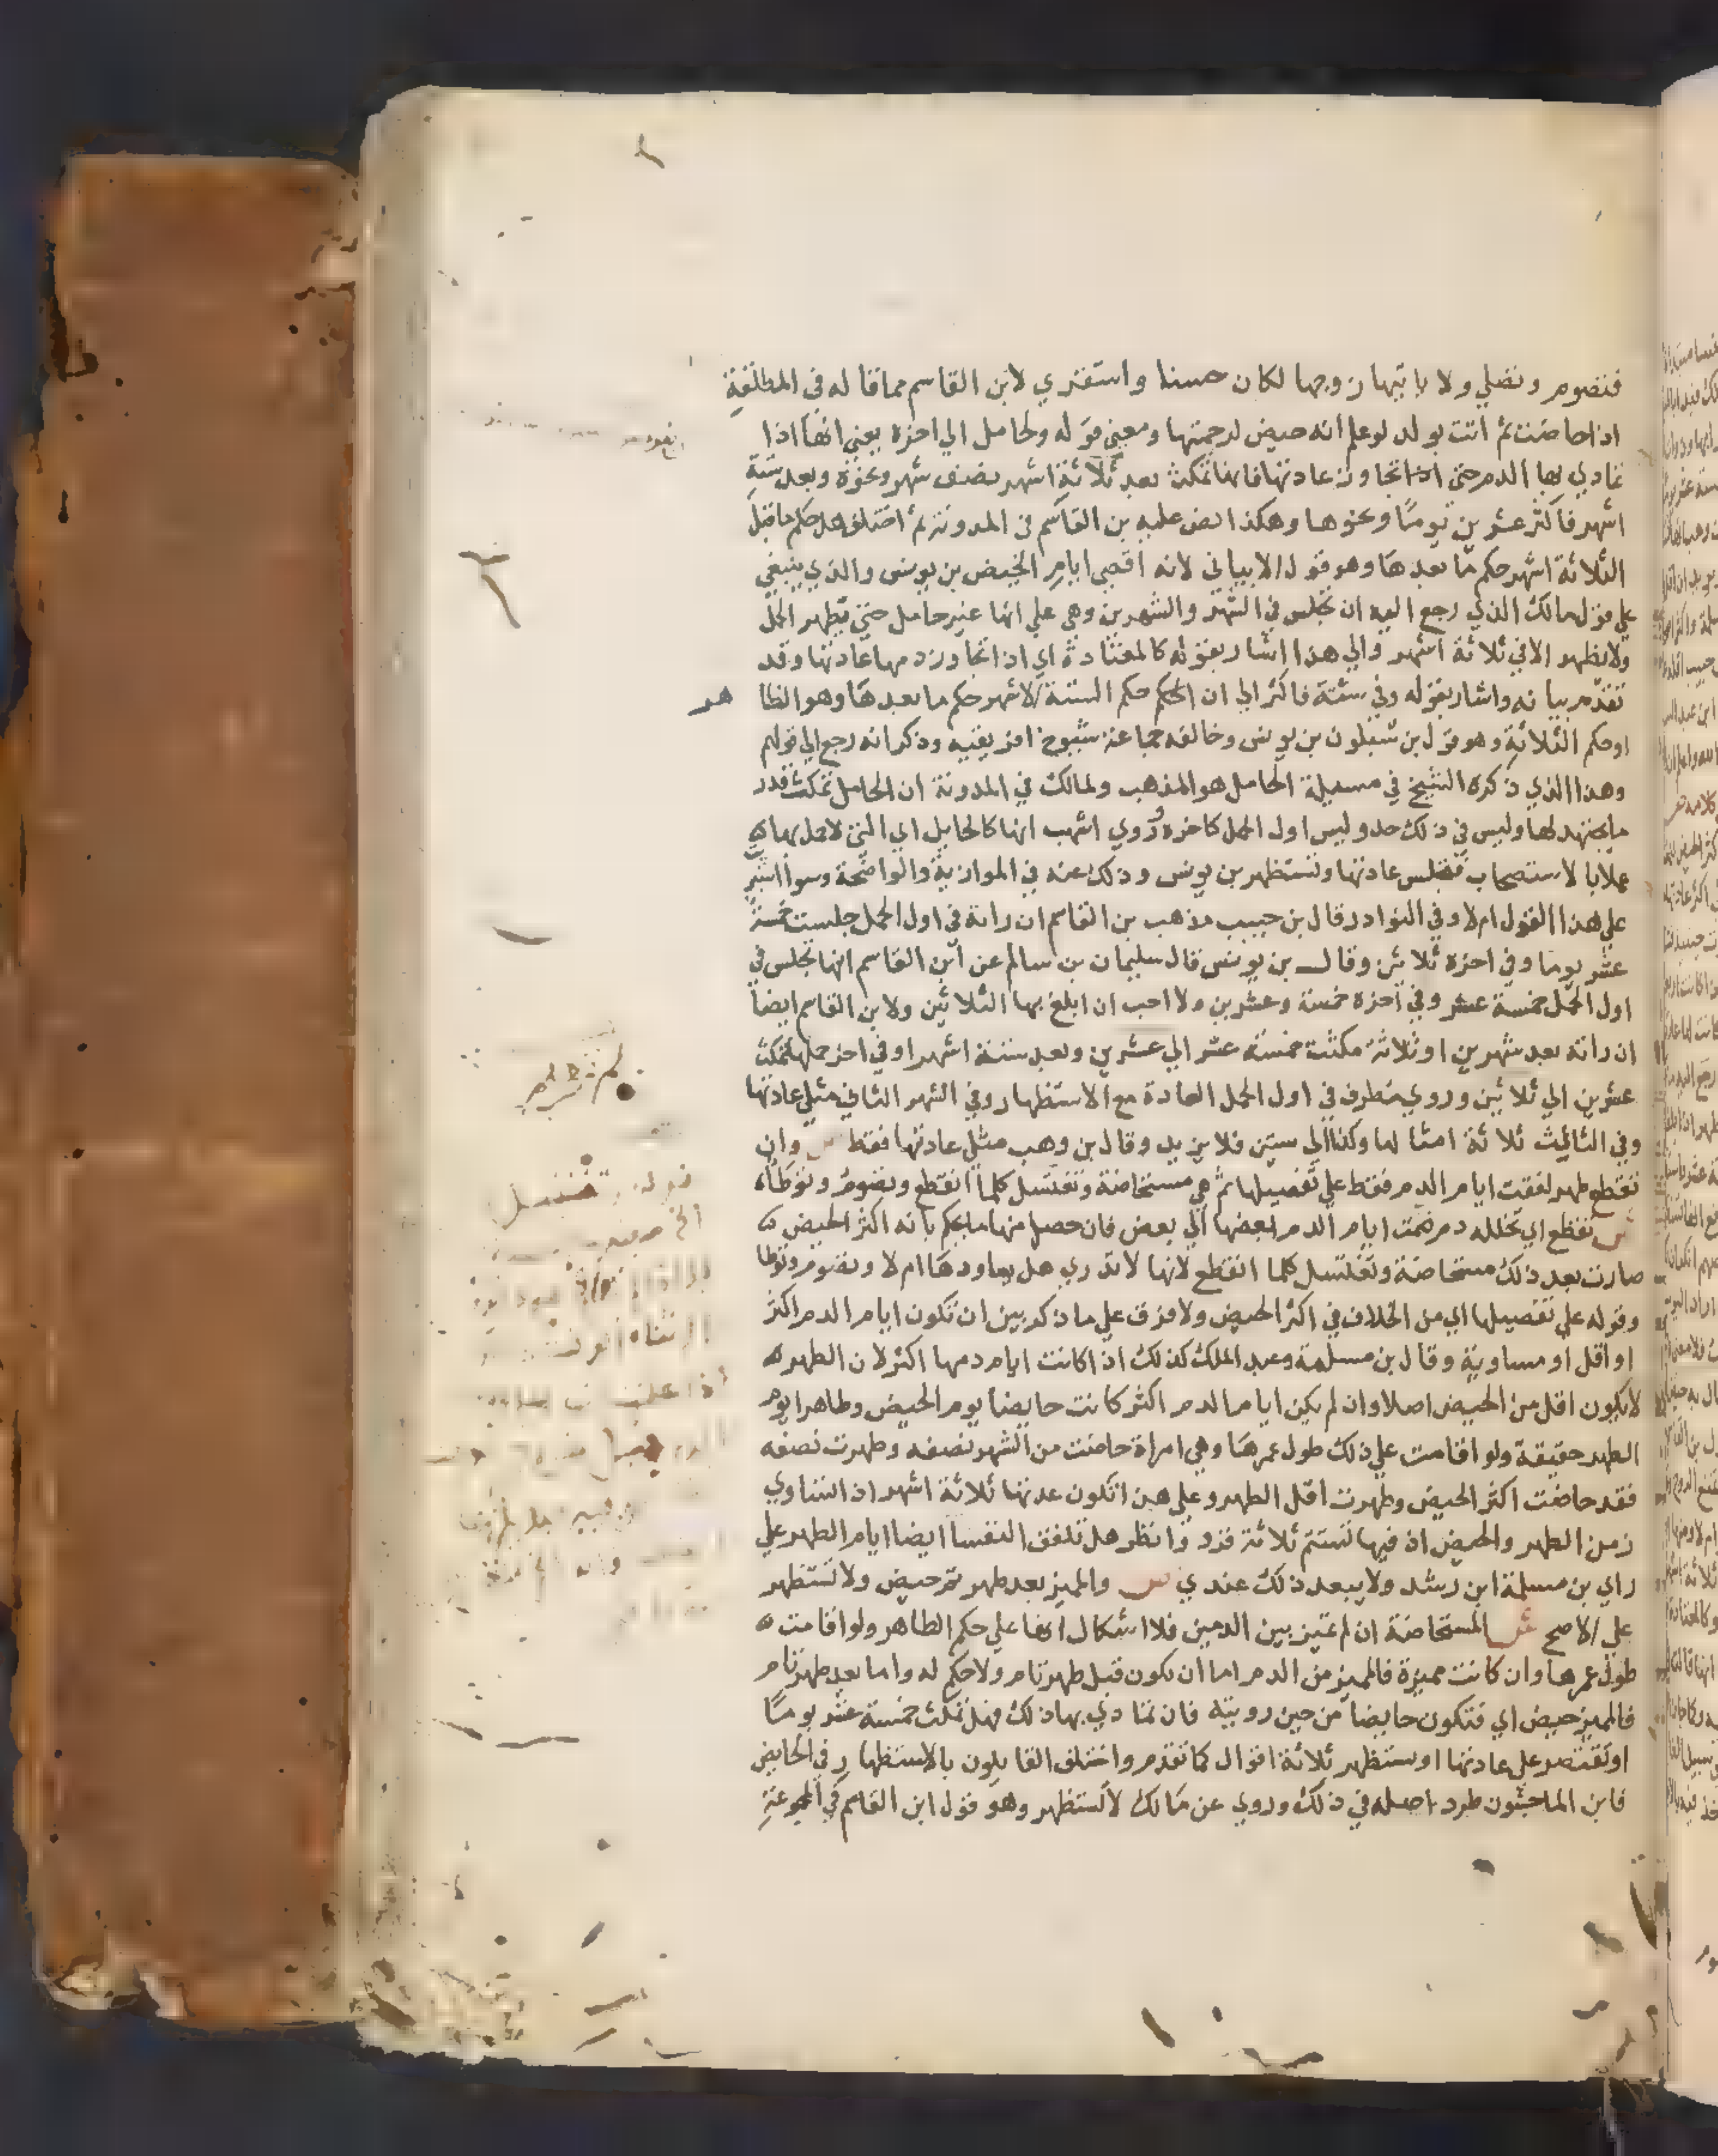 فتصوم وتصلي ولا ياتيها زوجها لكان حسنا واستقري لابن القاسم مما قاله في المطلقة
اذا حاضت ثم اتت بولد لو علم انه حيض لرجمتها ومعني قوله ولحامل الي اخره يعني انها اذا
تمادي بها الدم حتي اذا تجاوز عادتها فانها تمكث بعد ثلاثة اشهر نصف شهر ونحوه وبعد ستة
اشهر فاكثر عشرين يوما ونحوها وهكذا نص عليه بن القاسم في المدونة ثم اختلف هل حكم ما قبل
الثلاثة اشهر حكم ما بعدها وهو قول الابياني لانه اقصي ايام الحيض بن يونس والذي ينبغي
علي قول مالك الذي رجع اليه ان تجلس في الشهر والشهرين وهي علي انها غير حامل حتي يظهر الحمل
ولا يظهر الا في ثلاثة اشهر والي هذا اشار بقوله كالمعتادة اي اذا تجاوز دمها عادتها وقد
تقدم بيانه واشار بقوله وفي ستة فاكثر الي ان الحكم حكم الستة الاشهر حكم ما بعدها وهو الظاهر
او حكم الثلاثة وهو قول بن شبلون بن يونس وخالفه جماعة شيوخ افريقيه وذكر انه رجع الي قولهم
وهذا الذي ذكره الشيخ في مسيلة الحامل هو المذهب ولمالك في المدونة ان الحامل تمكث قدر
ما يجتهد لها وليس في ذلك حد وليس اول الحمل كاخره وروي اشهب انها كالحايل اي التي لا حمل بها
عملا بالاستصحاب فتجلس عادتها وتستظهر بن يونس وذلك عنه في الموازية والواضحة وسوا استبرت
علي هذا القول ام لا وفي النوادر قال بن حبيب مذهب بن القاسم ان راته في اول الحمل جلست خمسة
عشر يوما وفي اخره ثلاثين وقال بن يونس قال سليمان بن سالم عن ابن القاسم انها تجلس في
اول الحمل خمسة عشر وفي اخره خمسة وعشرين ولا احب ان ابلغ بها الثلاثين ولابن القاسم ايضا
ان راته بعد شهرين او ثلاثة مكثت خمسة عشر الي عشرين وبعد ستة اشهر او في اخر حملها تمكث
عشرين الي ثلاثين وروي مطرف في اول الحمل العادة مع الاستظهار وفي الشهر الثاني مثلي عادتها
وفي الثالث ثلاثة امثالها وكذا الي ستين فلا يزيد وقال بن وهب مثلي عادتها فقط ص وان
تقطع طهر لفقت ايام الدم فقط علي تفصيلها ثم هي مستحاضة وتغتسل كلما انقطع وتصوم وتوطا
ش تقطع اي تخلله دم ضمت ايام الدم بعضها الي بعض فان حصل منها ما يحكم بانه اكثر الحيض
صارت بعد ذلك مستحاضة وتغتسل كلما انقطع لانها لا تدري هل يعاودها ام لا وتصوم وتوطا
وقوله علي تفصيلها اي من الخلاف في اكثر الحيض ولا فرق علي ما ذكر بين ان تكون ايام الدم اكثر
او اقل او مساوية وقال بن مسلمة وعبد الملك كذلك اذا كانت ايام دمها اكثر لان الطهر
لا يكون اقل من الحيض اصلا وان لم يكن ايام الدم اكثر كانت حايضا يوم الحيض وطاهرا يوم
الطهر حقيقة ولو اقامت علي ذلك طول عمرها وهي امراة حاضت من الشهر نصفه وطهرت نصفه
فقد حاضت اكثر الحيض وطهرت اقل الطهر وعلي هذا تكون عدتها ثلاثة اشهر اذا تساوي
زمن الطهر والحيض اذ فيها تستتم ثلاثة قرو وانظر هل تلفق النفسا ايضا ايام الطهر علي
راي بن مسلمة ابن رشد ولا يبعد ذلك عندي ص والمميز بعد طهر تم حيض ولا تستظهر
علي الاصح ش المستحاضة ان لم تميز بين الدمين فلا اشكال انها علي حكم الطاهر ولو اقامت
طول عمرها وان كانت مميزة فالمميز من الدم اما ان يكون قبل طهر تام ولا حكم له واما بعد طهر تام
فالمميز حيض اي فتكون حايضا من حين رويته فان تمادي بها ذلك فهل تمكث خمسة عشر يوما
او تقتصر علي عادتها او تستظهر ثلاثة اقوال كما تقدم واختلف القايلون بالاستظهار في الحايض
فابن الماجشون طرد اصله في ذلك وروي عن مالك لا تستظهر وهو قول ابن القاسم في المجموعة
قوله وتغتسل